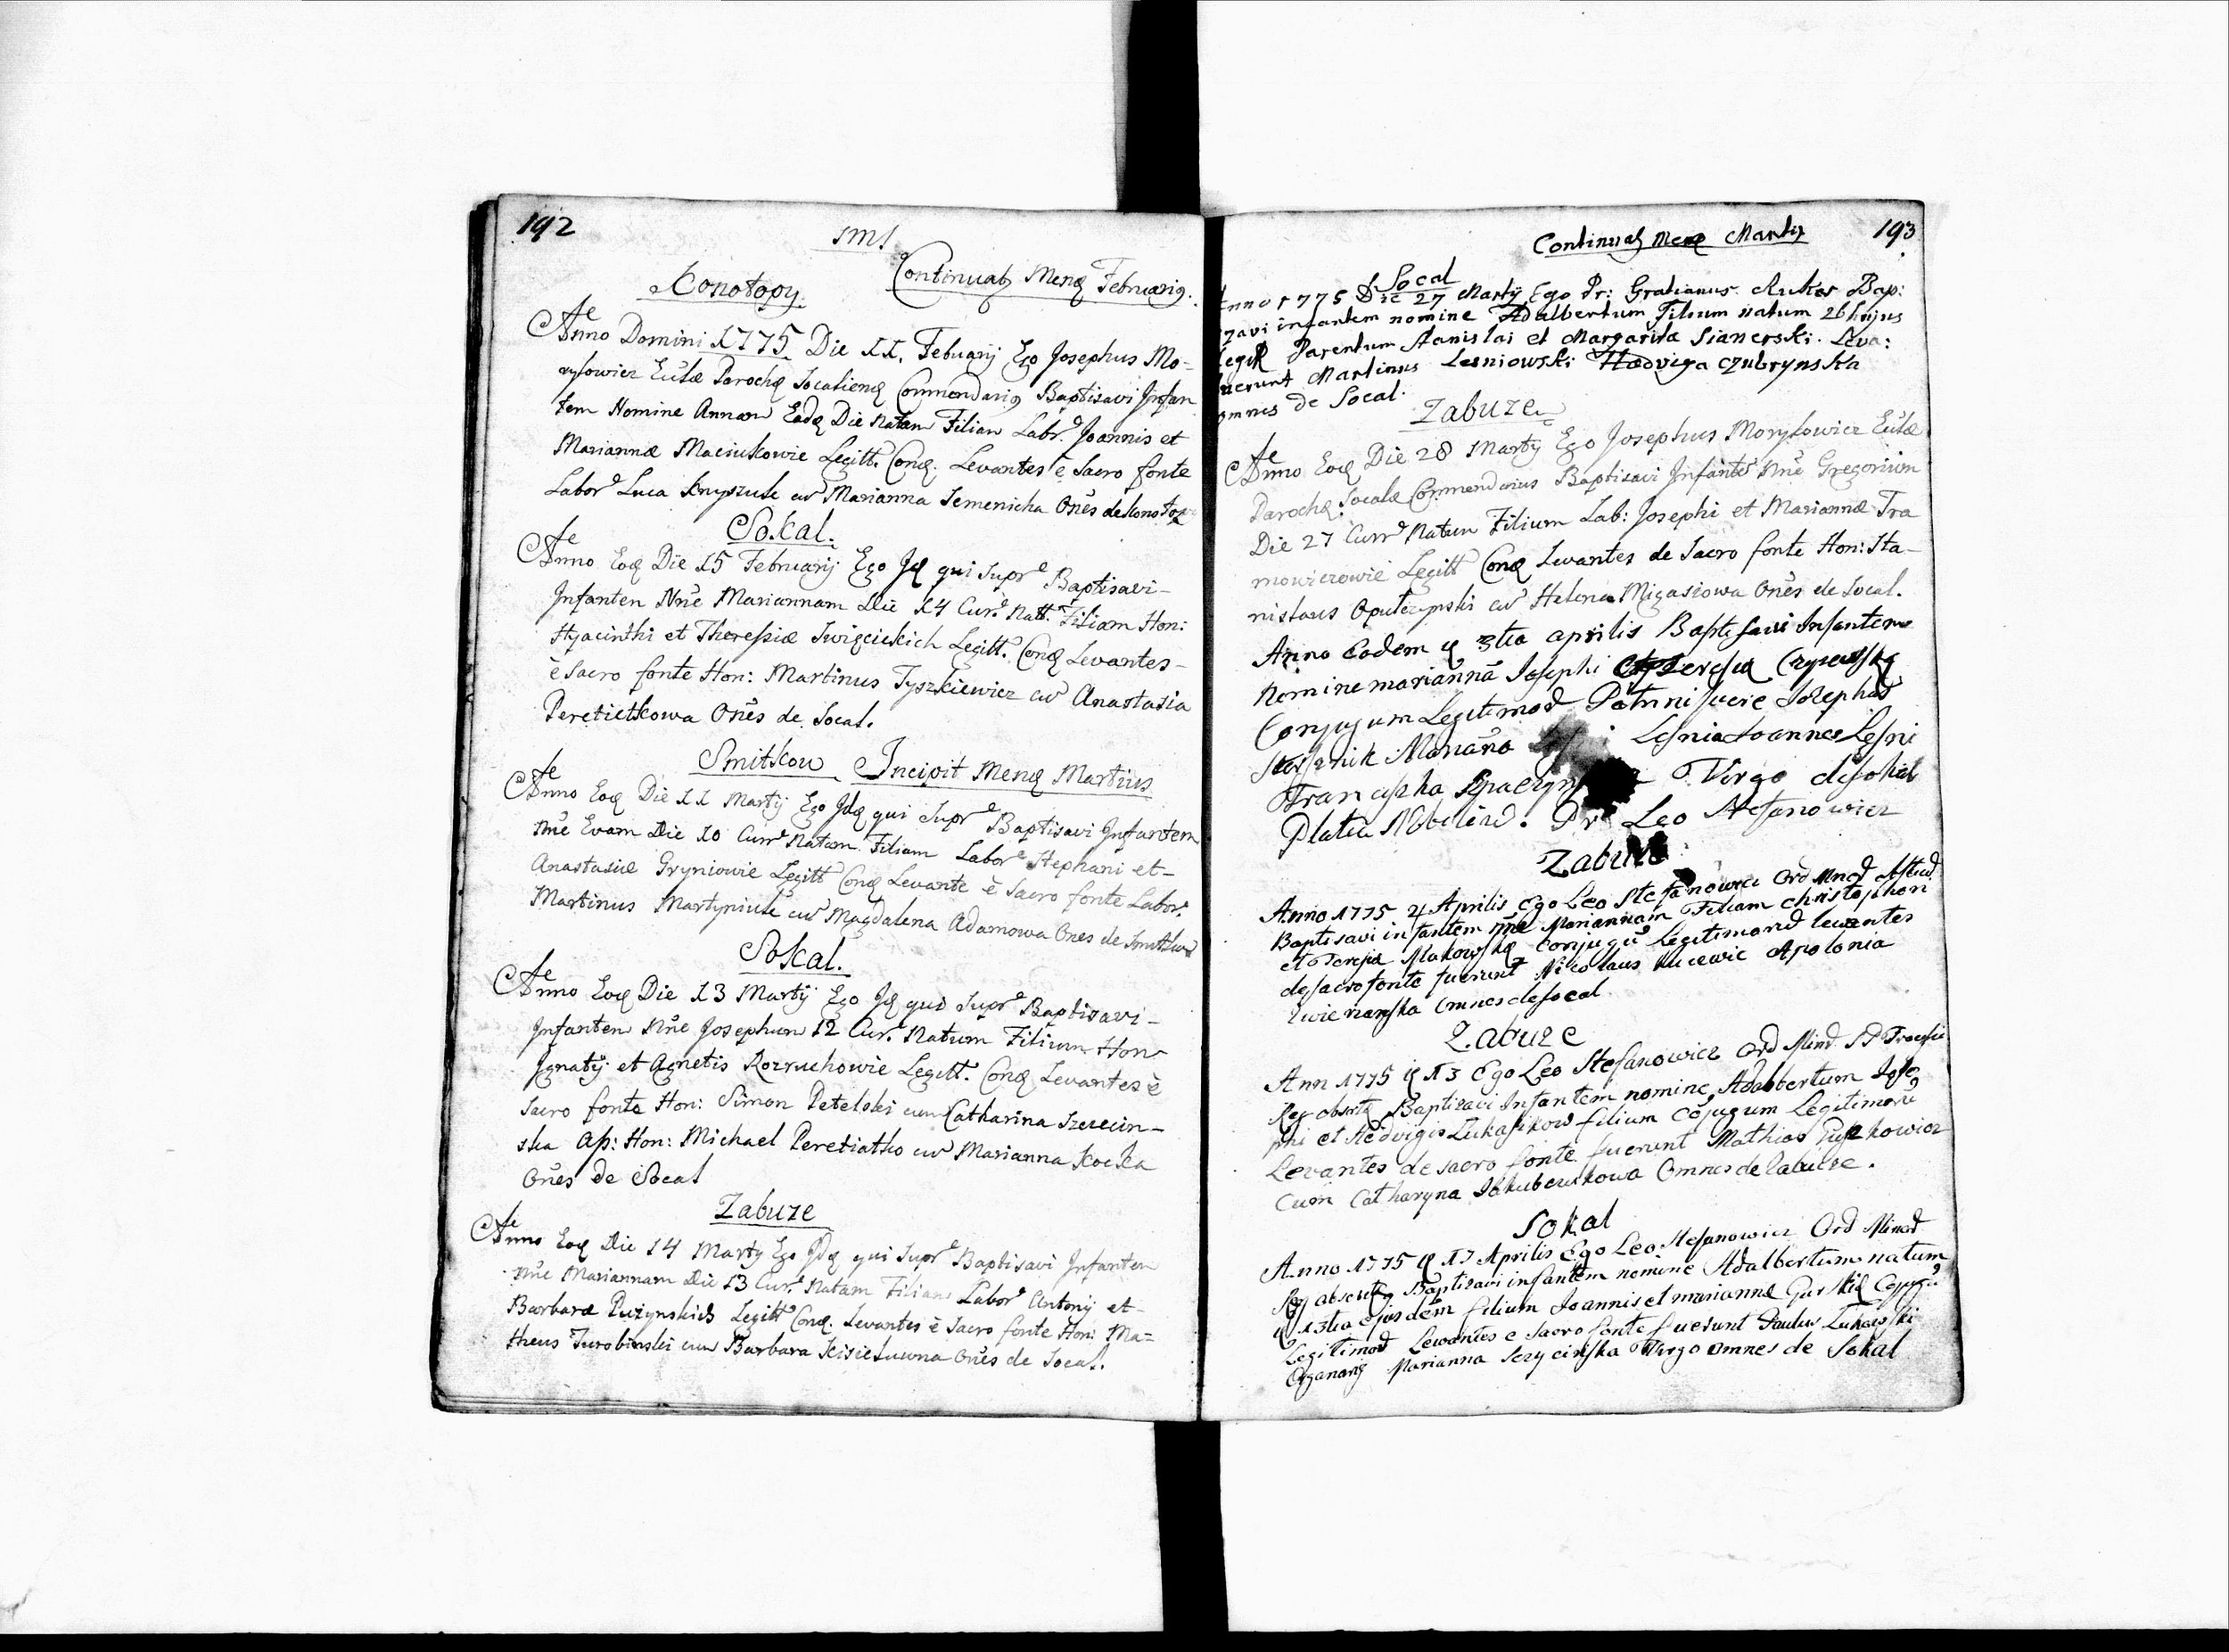 192
Konotopy.
Continuat Mens Februarig.
Anno Domini 1775 Die 11. Febuarij Ego Josephus Mo-
rylowicz Eccłæ Parochę Socalienę Commendarig Baptisavi Infan
tem Nomine Annam Eadę Die Natam Filiam Labr. Joannis et
Mariannæ Maciukowie Legitt. Conę. Levantes è Sacro fonte
Labor. Luca Knyszuk cũ Marianna Semenicha Onẽs de Konotop
Sokal.
Anno Eoę Die 15 Februarij Ego Ję qui Supr. Baptisavi-
Infantem Nñe Mariannam Die 14 Curr. Natt. Filiam Hon:
Hyacinthi et Theressiæ Swięcickich Legitt. Conę Levantes-
è Sacro fonte Hon: Martinus Tyszkiewicz cũ Anastasia
Peretietkowa Onẽs de Socal.
Smitkow Incipit Menę Martius
Anno Eoę Die 11 Martij Ego Jdę qui Supr. Baptisavi Infantem
Nñe Evam Die 10 Curr. Natam Filiam Labor. Stephani et-
Anastasiæ Gryniowie Legitt Conę Levante è Sacro fonte Labor.
Martinus Martyniuk cũ Magdalena Adamowa Ones de Smitkow
Sokal.
Anno Eoę Die 13 Martij Ego Ję qui Supr. Baptisavi-
Infantem Nñe Josephum 12 Cur. Natum Filium Hon
Ignatij et Agnetis Rozruchowie Legitt. Conę Levantes è
Sacro fonte Hon: Simon Petelski cum Catharina Szczecin-
ska Ass: Hon: Michael Peretiatko cũ Marianna Kocka
Onẽs de Socal
Zabuze
Anno Eoę Die 14 Martij Ego Jdę qui Supr. Baptisavi Infantem
Nñe Mariannam Die 13 Cur. Natam Filiam Labor. Antonij et-
Barbaræ Puzynskich Legitt. Conę. Levantes è Sacro fonte Hon: Ma-
theus Turobinski cum Barbara Kisieluwna Onẽs de Socal.
Continuat Menę Martij 193
Socal
nno 1775 Die 27 Martij Ego Pr: Gratianus Bap:
zavi infantem nomine Adalbertum Filium natum 26 hujus
Parentum Stanislai et Margarita Leva:
uerunt Martinus Lesniowski Hedviga Czubrynska
omnes de Socal.
Zabuze
Anno Eoę Die 28 Martij Ego Josephus Morylowicz Eccłæ
Parochę Socalæ Commendarius Baptisavi Infantẽ Nñe Gregorium
Die 27 Curr. Natum Filium Lab: Josephi et Mariannæ Tra
mowiczowie Legitt Conę Levantes de Sacro fonte Hon: Sta-
nislaus Opulczynski cũ Helena Migasiowa Onẽs de Socal.
Anno Eodem ę 3tia aprilis Baptisavi Infantem
Nomine mariannã Josephi
Conjugum Legitimor Patrini fuere Josephus
Marianna Lesnia Joannes Lesni
Franciszka Virgo de Sokal
Platea Pr Leo Stefanowicz
Zabuze
Anno 1775 4 Aprilis Ego Leo Stefanowicz Ord Minor
Baptisavi infantem nñe Mariannam Filiam Christophori
et Teresiæ Makowskę Conjugũ Legitimorũ levantes
de sacro fonte fuerunt Nicolaus Kucewic Apolonia
Omnes de Socal
Zabuze
Ann 1775 ę 13 Ego Leo Stefanowicz Ord Mino
Baptisavi Infantem nomine Adalbertum Jose
phi et Hedvigis Lukasikow filium Cõjugum Legitimorũ
Levantes de sacro fonte fuerunt Mathias
cum Catharyna Jakubcukowa Omnes de Zabuze.
Sokal
Anno 1775 ę 17 Aprilis Ego Leo Stefanowicz Ord Minor
Baptisavi infantem nomine Adalbertum natum
ę 13tia ejusdem filium Joannis et mariannæ Conjugũ
Legitimor Lewantes e sacro fonte fuerunt Paulus Lukowski
Organarij Marianna Virgo omnes de Sokal